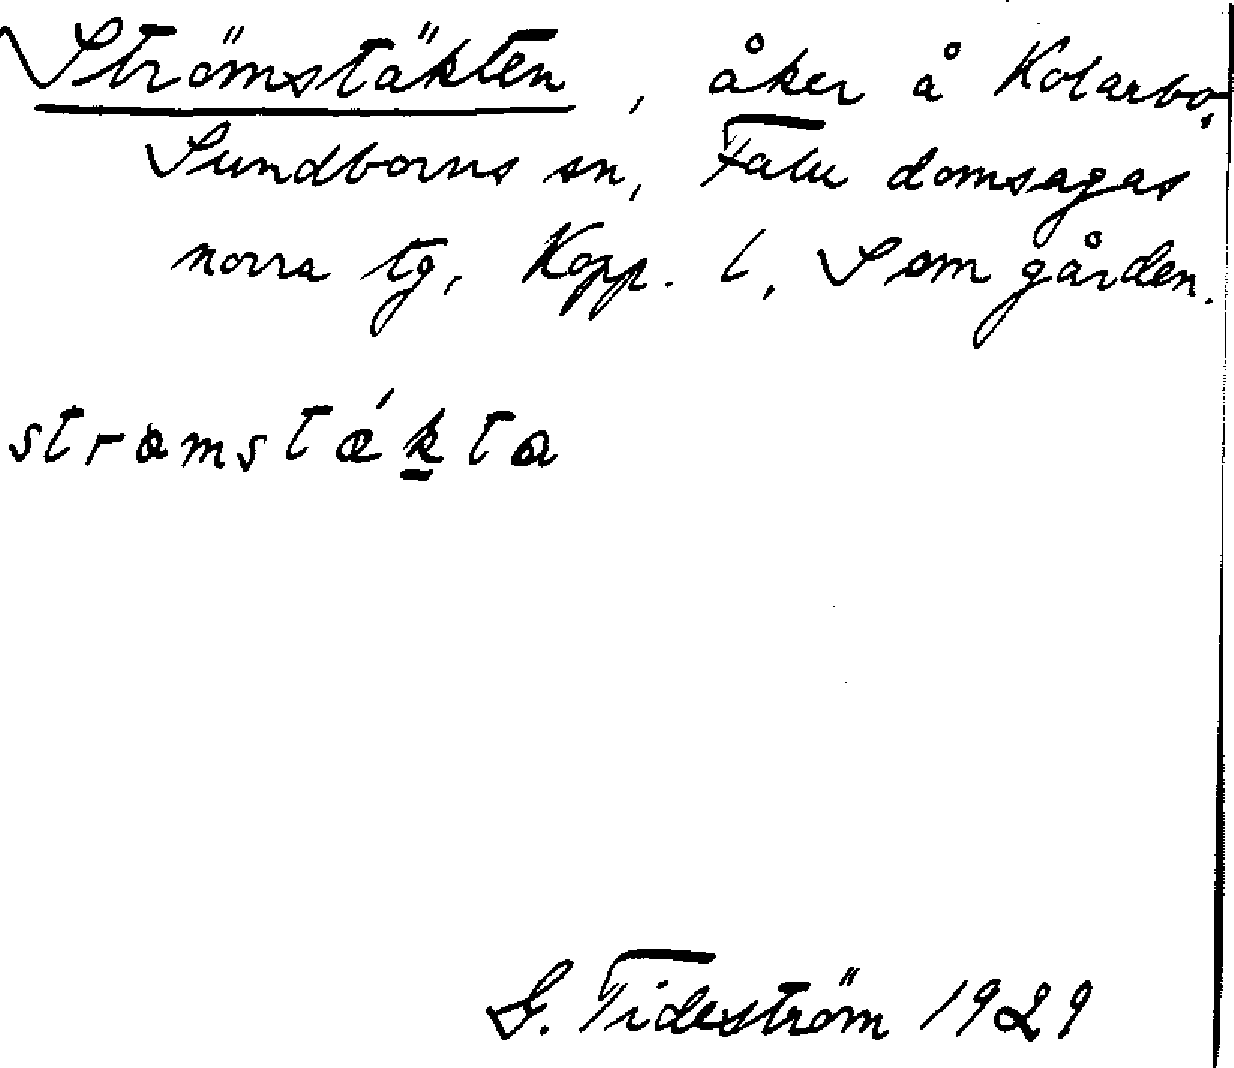 Strömstäkten, åker å Kolarbo,
Sundborns sn, Falu domsagas
norra tg, Kopp. l, Som gården.
stramstǽk̲ta
G. Tideström 1929